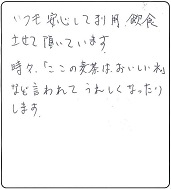 いつも安心して利用、飲食
させて頂いています。
時々、「ここの麦茶は、おいしいね」
など言われて うれしくなったり
します。